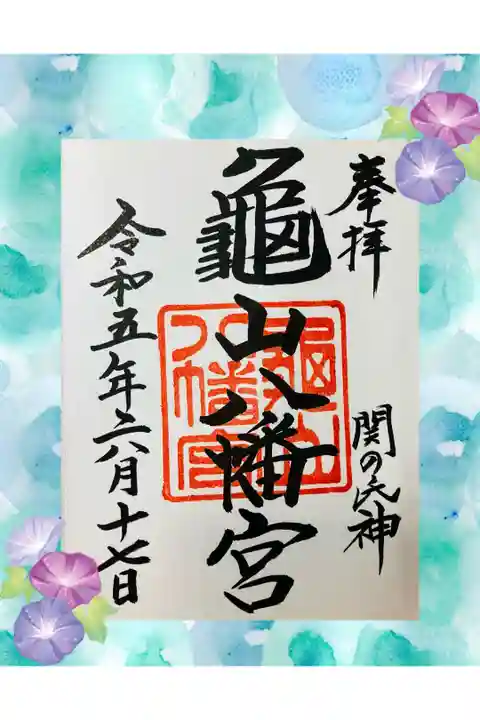 奉拝
関の氏神
龜山八幡宮
龜山八幡宮
令和五年六月十七日